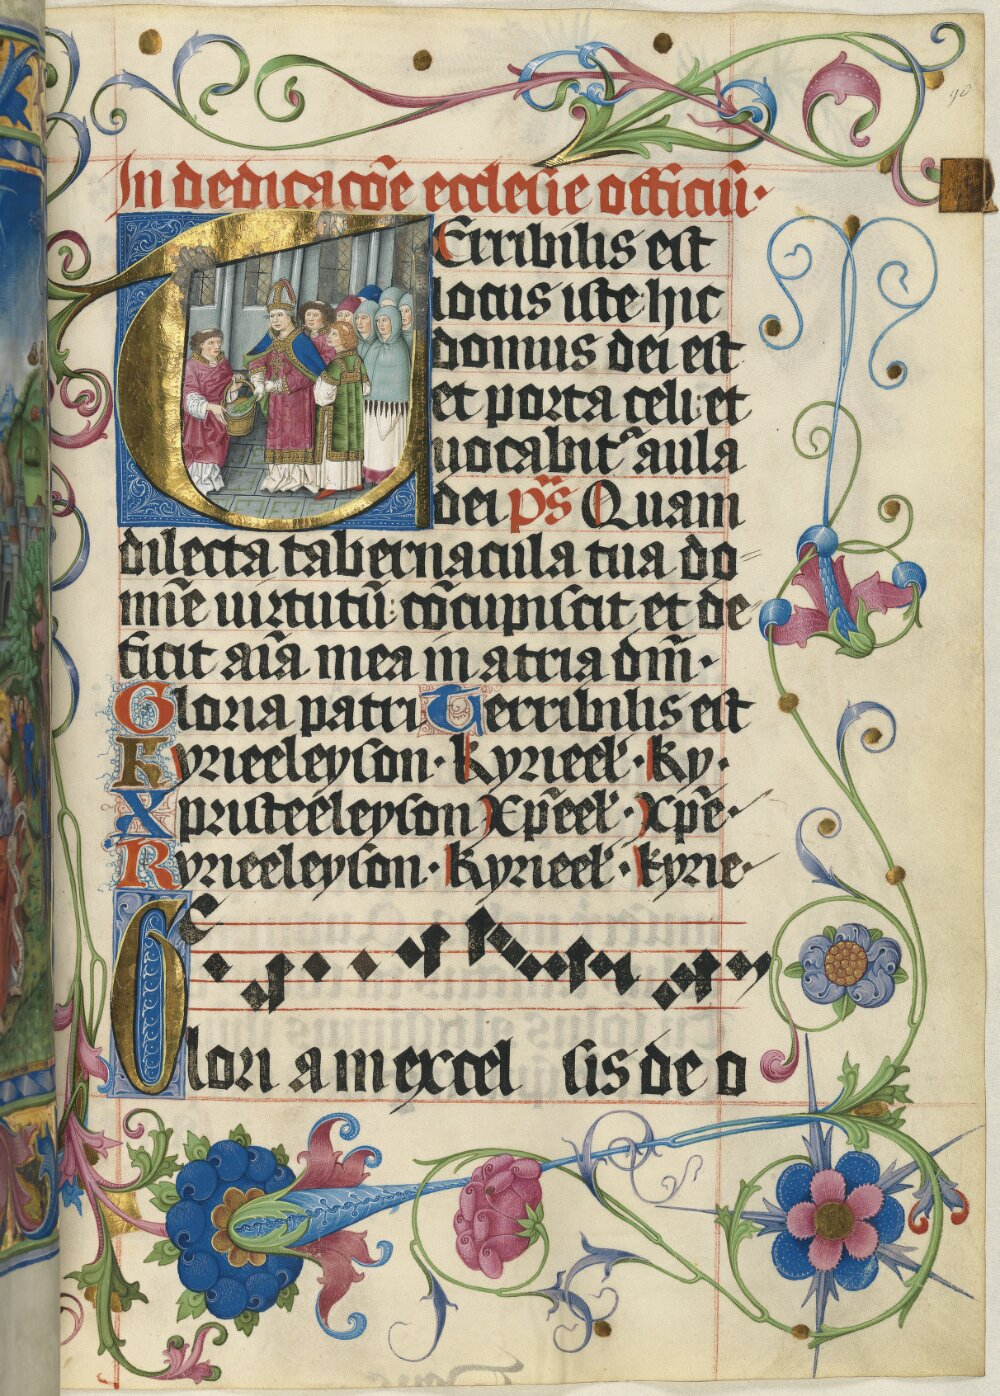 90
In dedicacõe ecclesie officiũ·
Terribilis est
locus iste hic
domus dei est
et porta celi: et
uocabit᷑ aula
dei p̃s Quam
dilecta tabernacula tua do=
mĩe uirtutũ: cõcupiscit et de=
ficit aĩa mea in atria dñi·
Gloria patri Terribilis est
Kyrieeleyson· Kyrieel̛· Ky·
Xpristeeleyson Xp̃eel̛· Xp̃e·
Kyrieeleyson· Kyrieel̛· kyrie·
Glori a in excel sis de o